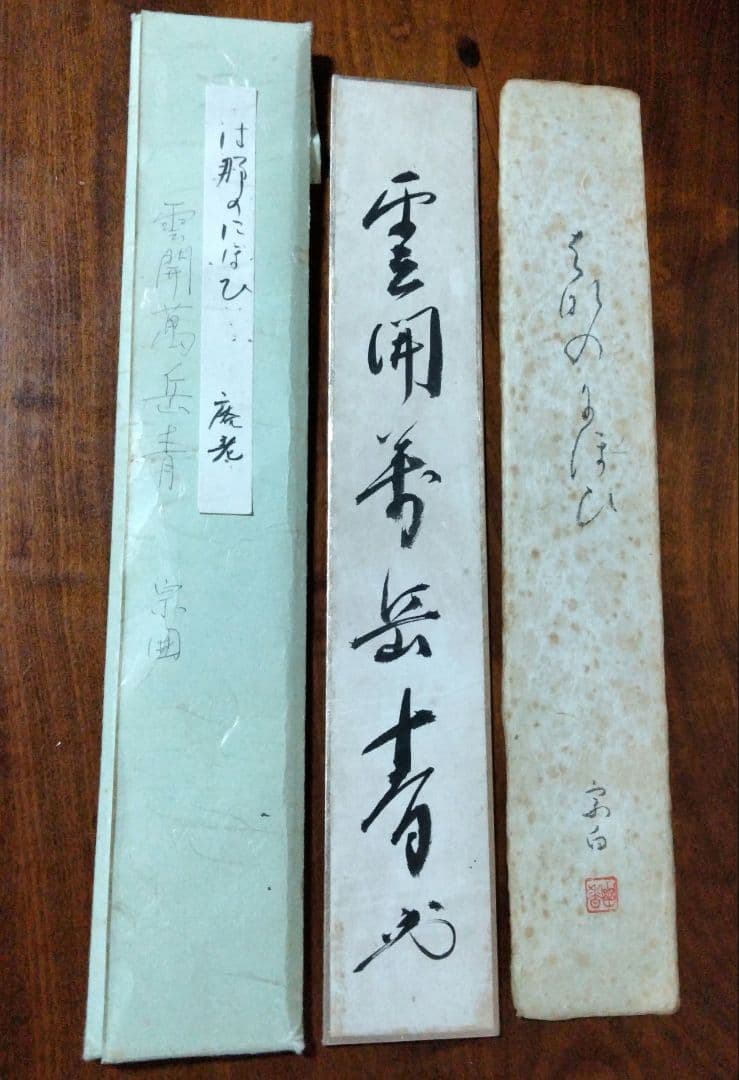 はかのにほひ
宗白
雲開萬岳青
雲開萬岳青
宗囲
は那のにほひ
庵老